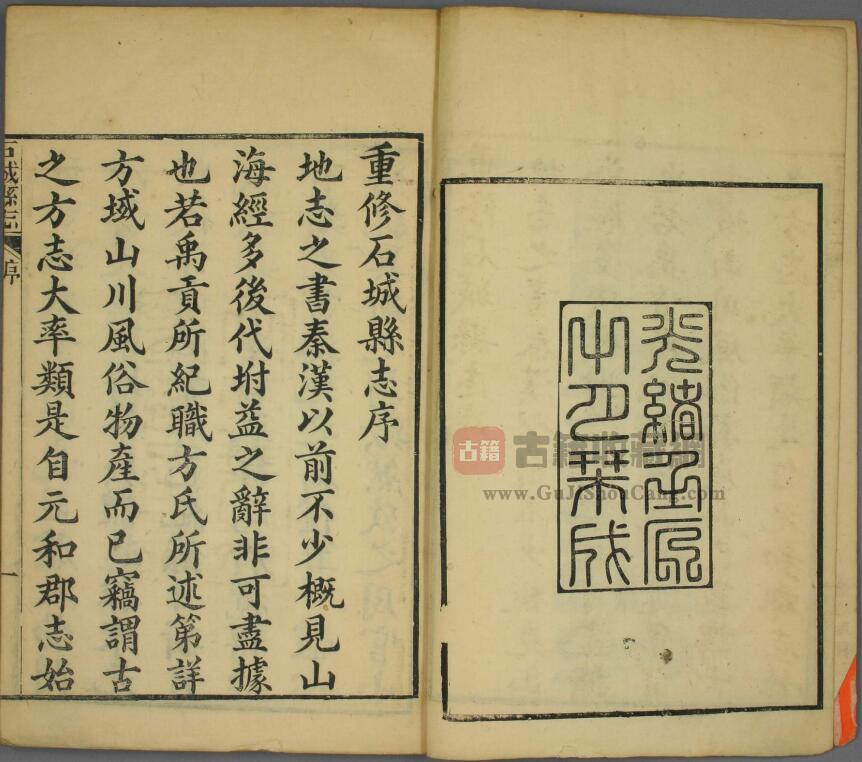 光緒壬辰
月栞成
重修石城縣志序
地志之書秦漢以前不少概見山
海經多後代坿益之辭非可盡據
也若禹貢所紀職方氏所述第詳
方域山川風俗物產而已竊謂古
之方志大率類是自元和郡志始
石城縣志
序
一
古籍
古籍收藏網
www.GuJiShouCang.com